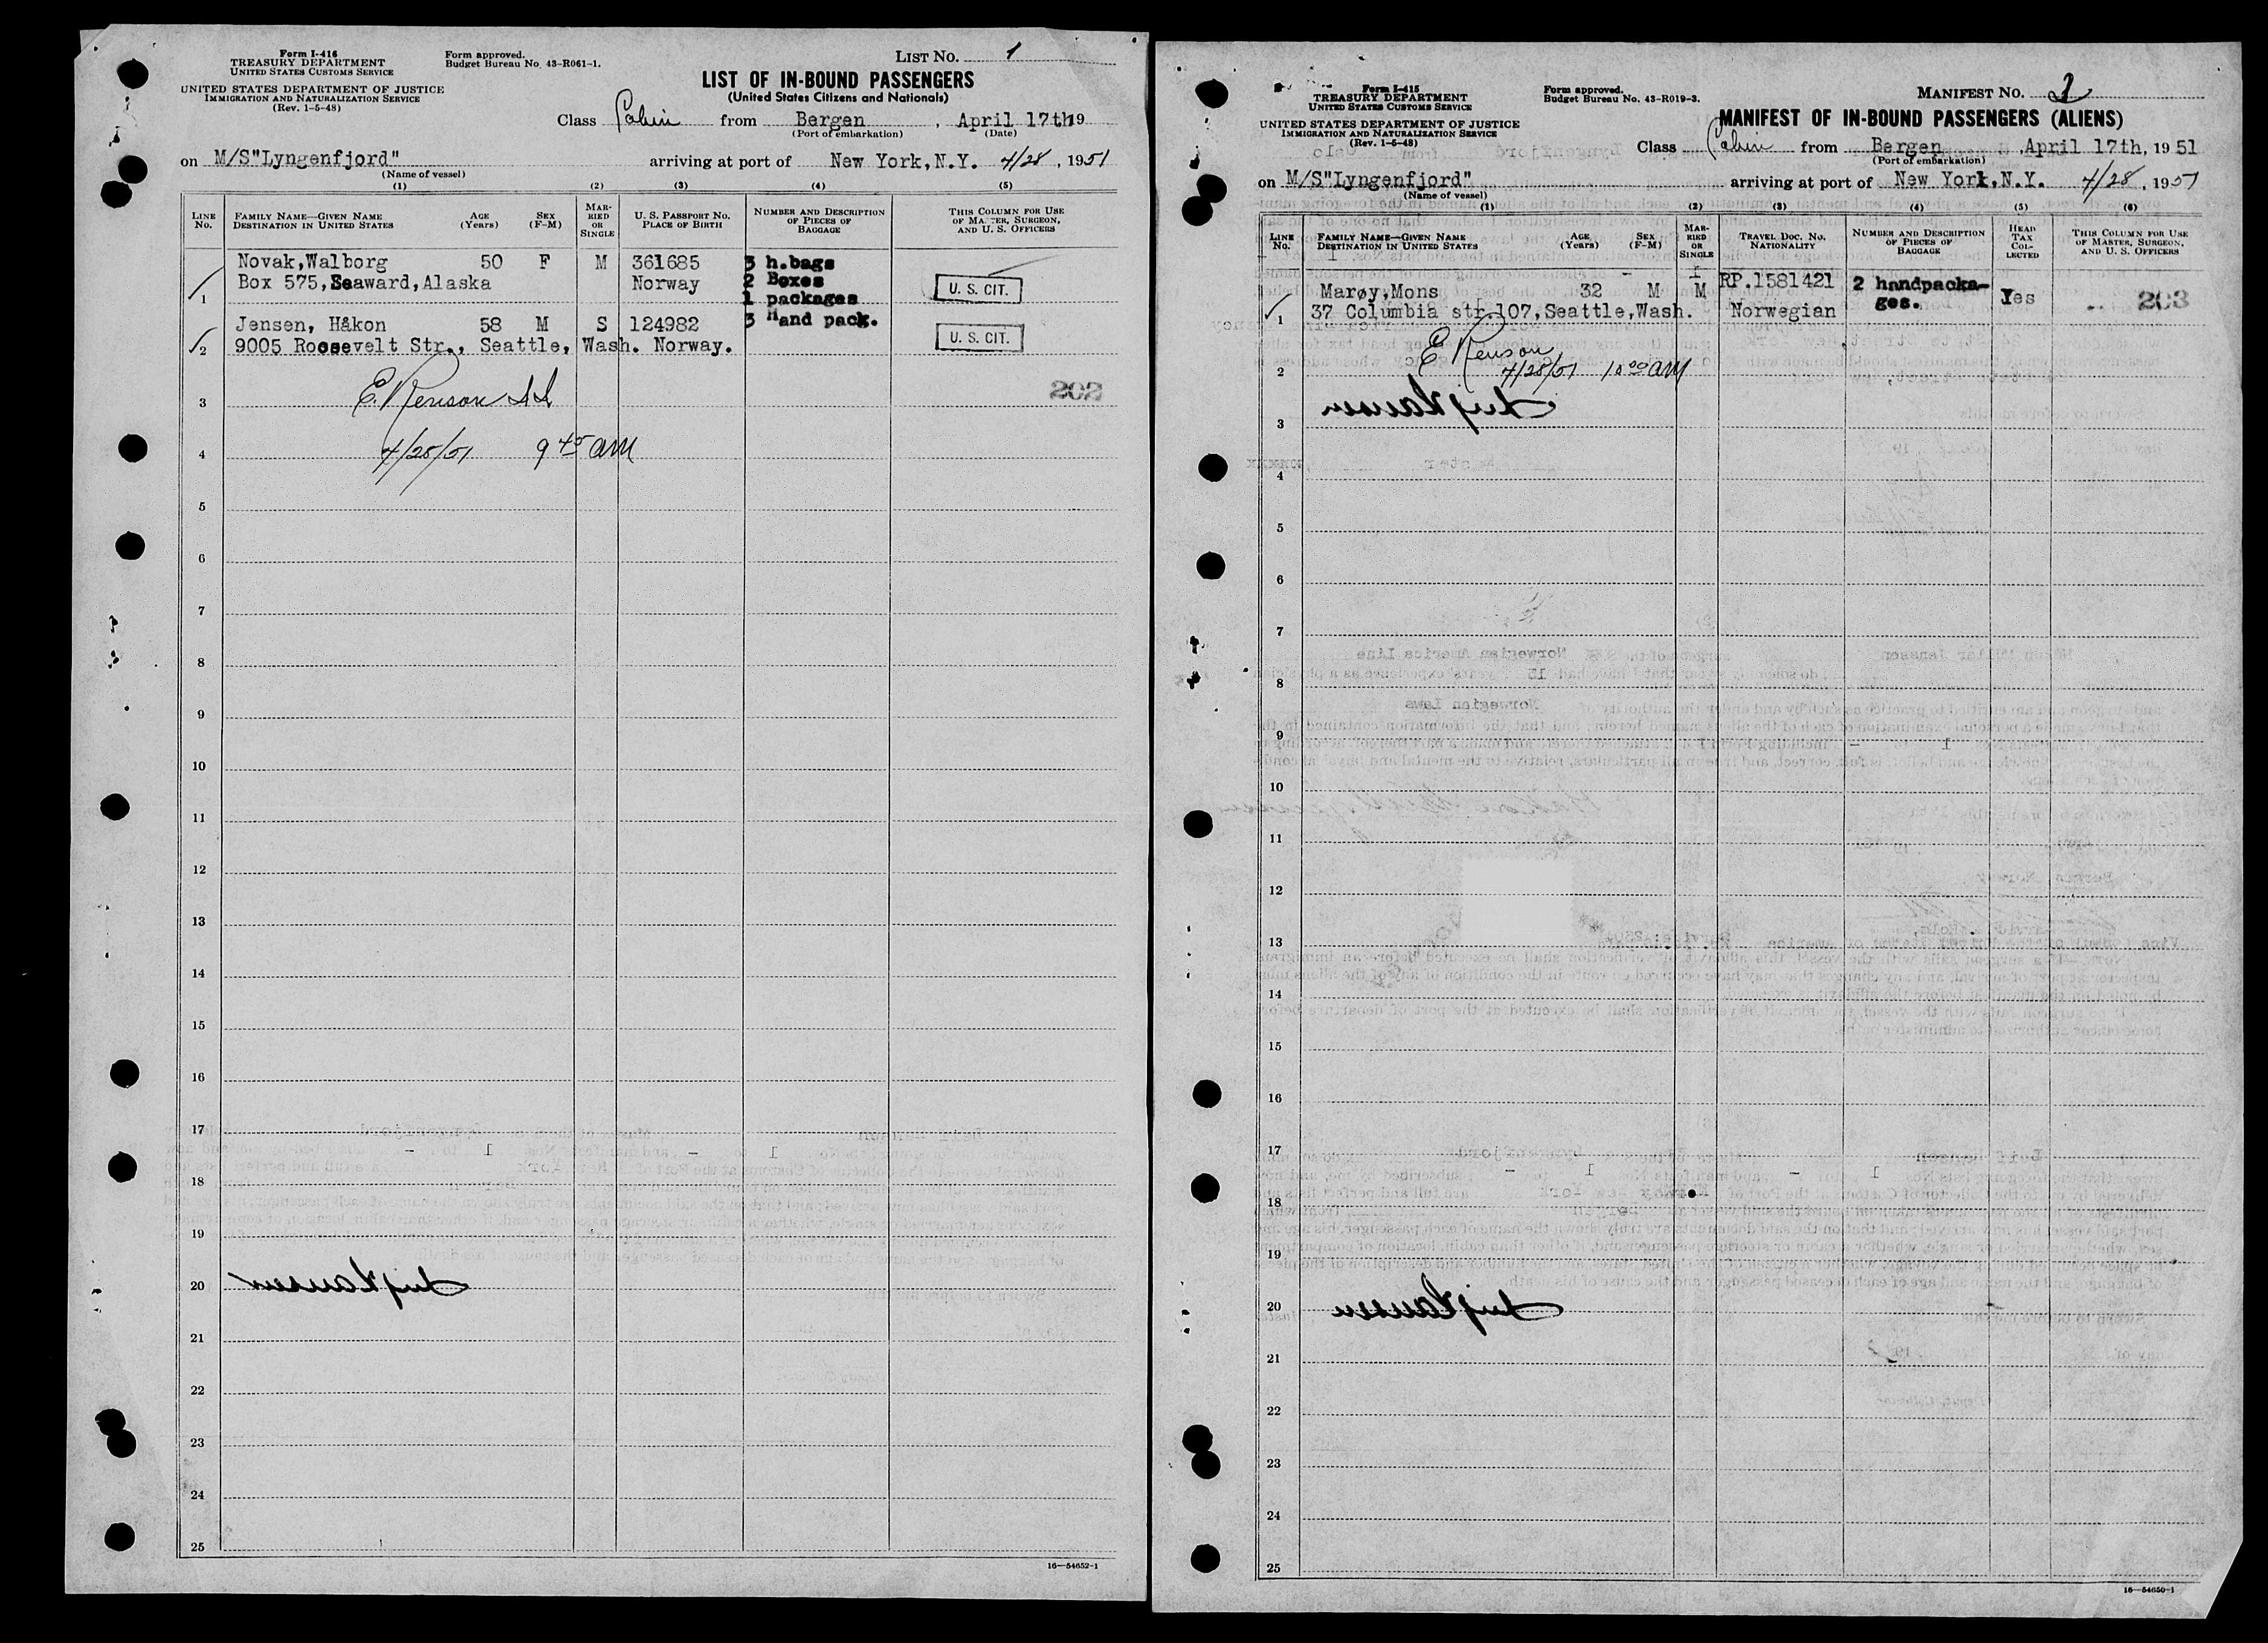 Form I-416
TREASURY DEPARTMENT
UNITED STATES CUSTOMS SERVICE
UNITED STATES DEPARTMENT OF JUSTICE
IMMIGRATION AND NATURALIZATION SERVICE
(Rev. 1-5-48)
Form approved.
Budget Bureau No. 43-R061-1.
LIST NO. 1
LIST OF IN-BOUND PASSENGERS
(United States Citizens and Nationals)
Class Cabin from Bergen, April 17th 19
(Port of embarkation) (Date)
on M/S"Lyngenfjord" arriving at port of New York,N.Y. 4/28, 1951
(Name of vessel)
(1) (2) (3) (4) (5)
LINE No. FAMILY NAME—GIVEN NAME DESTINATION IN UNITED STATES AGE (Years) SEX (F-M) MARRIED OR SINGLE U. S. PASSPORT NO. PLACE OF BIRTH NUMBER AND DESCRIPTION OF PIECES OF BAGGAGE THIS COLUMN FOR USE OF MASTER, SURGEON, AND U. S. OFFICERS
Novak,Walborg 50 F M 361685 3 h.bags
Box 575,Seaward,Alaska Norway 2 Boxes
1 1 packages U. S. CIT.
Jensen, Håkon 58 M S 124982 3 Hand pack.
2 9005 Roosevelt Str., Seattle, Wash. Norway. U. S. CIT.
E. Renson
3 202
4 4/28/51 9 45 AM
5
6
7
8
9
10
11
12
13
14
15
16
17
18
19
20 Leif Hansen
21
22
23
24
25
16—54652-1
Form I-415
TREASURY DEPARTMENT
UNITED STATES CUSTOMS SERVICE
UNITED STATES DEPARTMENT OF JUSTICE
IMMIGRATION AND NATURALIZATION SERVICE
(Rev. 1-5-48)
Form approved.
Budget Bureau No. 43-R019-3.
MANIFEST NO.
MANIFEST OF IN-BOUND PASSENGERS (ALIENS)
Class Cabin from Bergen, April 17th, 1951
(Port of embarkation)
on M/S"Lyngenfjord" arriving at port of New York,N.Y. 4/28, 1951
(Name of vessel)
(1) (2) (3) (4) (5) (6)
LINE No. FAMILY NAME—GIVEN NAME DESTINATION IN UNITED STATES AGE (Years) SEX (F-M) MARRIED OR SINGLE TRAVEL DOC. NO. NATIONALITY NUMBER AND DESCRIPTION OF PIECES OF BAGGAGE HEAD TAX COLLECTED THIS COLUMN FOR USE OF MASTER, SURGEON, AND U. S. OFFICERS
Marøy,Mons 32 M M RP.1581421 2 handpacka-
1 37 Columbia str.107,Seattle,Wash. Norwegian ges. Yes 203
E Renson
2 4/28/51 10 00 AM
3 Leif Hansen
4
5
6
7
8
9
10
11
12
13
14
15
16
17
18
19
20 Leif Hansen
21
22
23
24
25
16—54650-1